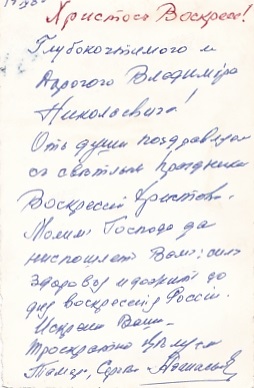 Христосъ Воскресе!
Глубокочтимого и
Дорогого Владиміра
Николаевича!
Отъ души поздравляемъ
съ свѣтлымъ Праздникомъ
Воскресенія Христова.
Молимъ Господа да
ниспошлетъ Вамъ силъ
здоровья и дожить до
дня воскресенія Россіи.
Искренне Ваши
Троекратно цѣлуемъ
Тамара, Сергѣй